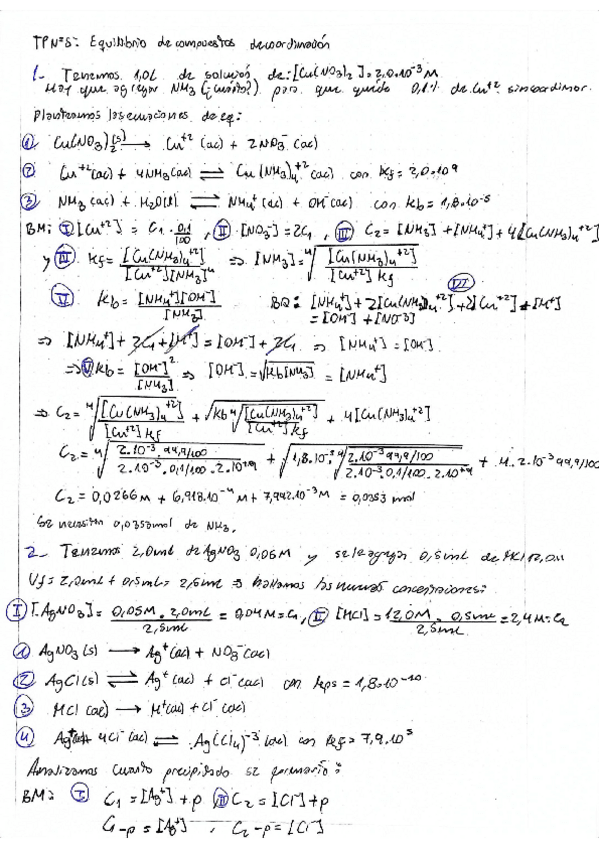 TP Nº5: Equilibrio de compuestos de coordinación
1- Tenemos 1,0L de solución de: [Cu(NO3)2] = 2,0.10^-3 M
Hay que agregar NH3 (¿cuánto?) para que quede 0,1% de Cu+2 sin coordinar.
Planteamos las ecuaciones de eq:
① Cu(NO3)2(s) → Cu+2 (ac) + 2NO3- (ac)
② Cu+2(ac) + 4NH3(ac) ⇌ Cu(NH3)4+2(ac) con Kf = 2,0.10^9
③ NH3(ac) + H2O(l) ⇌ NH4+(ac) + OH-(ac) con Kb = 1,8.10^-5
BM: Ⓘ [Cu+2] = C1 . 0,1/100 , Ⓘ Ⓘ [NO3-] = 2C1 , III C2 = [NH3] + [NH4+] + 4[Cu(NH3)4+2]
y IV Kf = [Cu(NH3)4+2] / [Cu+2][NH3]^4 ⇒ [NH3] = ⁴√([Cu(NH3)4+2] / [Cu+2] Kf)
V Kb = [NH4+][OH-] / [NH3] BQ: VI [NH4+] + 2[Cu(NH3)4+2] + 2[Cu+2] + [H+]
= [OH-] + [NO3-]
⇒ [NH4+] + 2C1 + [H+] = [OH-] + 2C1 ⇒ [NH4+] = [OH-]
⇒ V Kb = [OH-]^2 / [NH3] ⇒ [OH-] = √(Kb[NH3]) = [NH4+]
⇒ C2 = ⁴√([Cu(NH3)4+2] / [Cu+2] Kf) + √(Kb ⁴√([Cu(NH3)4+2] / [Cu+2] Kf)) + 4[Cu(NH3)4+2]
C2 = ⁴√(2.10^-3 . 99,9/100 / 2.10^-3 . 0,1/100 . 2.10^+9) + √(1,8.10^-5 ⁴√(2.10^-3 99,9/100 / 2.10^-3 0,1/100 . 2.10^+9)) + 4.2.10^-3 99,9/100
C2 = 0,0266 M + 6,918.10^-4 M + 7,992.10^-3 M = 0,0353 mol
Se necesitan 0,0353 mol de NH3.
2- Tenemos 2,0mL de AgNO3 0,05M y se le agregan 0,5mL de HCl 12,0M
Vf = 2,0mL + 0,5mL = 2,5mL ⇒ hallamos las nuevas concentraciones:
Ⓘ [AgNO3] = 0,05M . 2,0mL / 2,5mL = 0,04M = C1 , II [HCl] = 12,0M . 0,5mL / 2,5mL = 2,4M = C2
① AgNO3 (s) → Ag+ (ac) + NO3- (ac)
② AgCl(s) ⇌ Ag+ (ac) + Cl- (ac) con Kps = 1,8.10^-10
③ HCl (ac) → H+(ac) + Cl- (ac)
④ Ag+ 4Cl- (ac) ⇌ Ag(Cl4)^-3 (ac) con Kf = 7,9.10^5
Analizamos cuanto precipitado se formaría:
BM: Ⓘ C1 = [Ag+] + p II C2 = [Cl-] + p
C1 - p = [Ag+] , C2 - p = [Cl-]